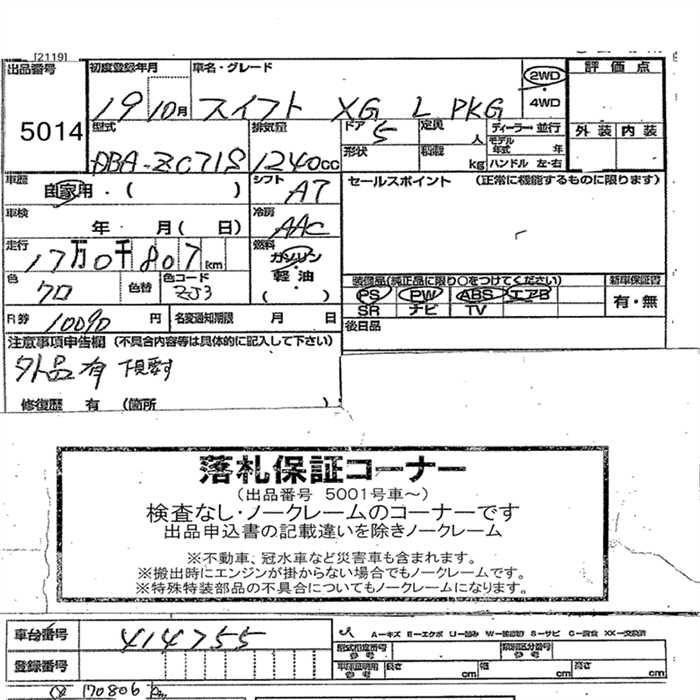 [2119]
出品番号 初度登録年月 車名・グレード 2WD 評価点
5014 19 10月 スイフト XG L PKG 4WD
型式 排気量 ドア 5 定員 人 ディーラー・並行 外装 内装
DBA-ZC71S 1240cc 形状 積載 kg モデル年式 年 ハンドル 左・右
車歴 自家用・( ) シフト AT セールスポイント (正常に機能するものに限ります)
車検 年 月( 日) 冷房 AAC
走行 17万0千807km 燃料 ガソリン 軽・油 ( )
色 クロ 色替 色コード ZJ3
装備品(純正品に限り○をつけてください) 新車保証書
PS PW ABS エアB 有・無
SR ナビ TV
R券 10090円 名変通知期限 月 日 後日品
注意事項申告欄 (不具合内容等は具体的に記入して下さい)
外品有
修復歴 有 (箇所 )
落札保証コーナー
(出品番号 5001号車~)
検査なし・ノークレームのコーナーです
出品申込書の記載違いを除きノークレーム
※不動車、冠水車など災害車も含まれます。
※搬出時にエンジンが掛からない場合でもノークレームです。
※特殊特装部品の不具合についてもノークレームになります。
車台番号 414755 A-キズ E-エクボ U-凹み W-補修跡 S-サビ C-腐食 XX-交換済
型式指定番号 参考 類別区分番号 参考
登録番号 車庫証明用 参考 長さ cm 幅 cm 高さ cm
170806 km